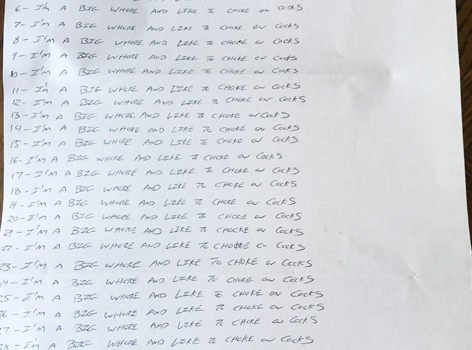 6- I'M A BIG WHORE AND LIKE TO CHOKE ON COCKS
7- I'M A BIG WHORE AND LIKE TO CHOKE ON COCKS
8- I'M A BIG WHORE AND LIKE TO CHOKE ON COCKS
9- I'M A BIG WHORE AND LIKE TO CHOKE ON COCKS
10- I'M A BIG WHORE AND LIKE TO CHOKE ON COCKS
11- I'M A BIG WHORE AND LIKE TO CHOKE ON COCKS
12- I'M A BIG WHORE AND LIKE TO CHOKE ON COCKS
13- I'M A BIG WHORE AND LIKE TO CHOKE ON COCKS
14- I'M A BIG WHORE AND LIKE TO CHOKE ON COCKS
15- I'M A BIG WHORE AND LIKE TO CHOKE ON COCKS
16- I'M A BIG WHORE AND LIKE TO CHOKE ON COCKS
17- I'M A BIG WHORE AND LIKE TO CHOKE ON COCKS
18- I'M A BIG WHORE AND LIKE TO CHOKE ON COCKS
19- I'M A BIG WHORE AND LIKE TO CHOKE ON COCKS
20- I'M A BIG WHORE AND LIKE TO CHOKE ON COCKS
21- I'M A BIG WHORE AND LIKE TO CHOCKE ON COCKS
22- I'M A BIG WHORE AND LIKE TO CHOKE COCKS
23- I'M A BIG WHORE AND LIKE TO CHOKE ON COCKS
24- I'M A BIG WHORE AND LIKE TO CHOKE ON COCKS
25- I'M A BIG WHORE AND LIKE TO CHOKE ON COCKS
26- I'M A BIG WHORE AND LIKE TO CHOKE ON COCKS
27- I'M A BIG WHORE AND LIKE TO CHOKE ON COCKS
28- I'M A BIG WHORE AND LIKE TO CHOKE ON COCKS